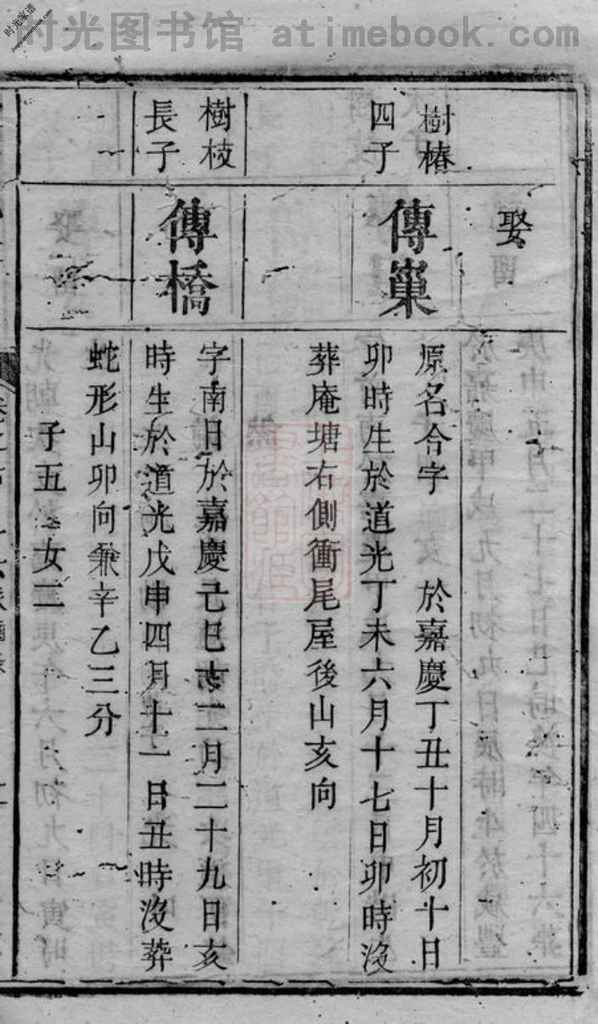 时光图书馆 atimebook.com
娶
樹椿
四子
傳巢
原名合字 於嘉慶丁丑十月初十日
卯時生於道光丁未六月十七日卯時沒
葬庵塘右側衝尾屋後山亥向
樹枝
長子
傳橋
字南日於嘉慶己巳二月二十九日亥
時生於道光戊申四月十一日丑時沒葬
蛇形山卯向兼辛乙三分
子五 女二